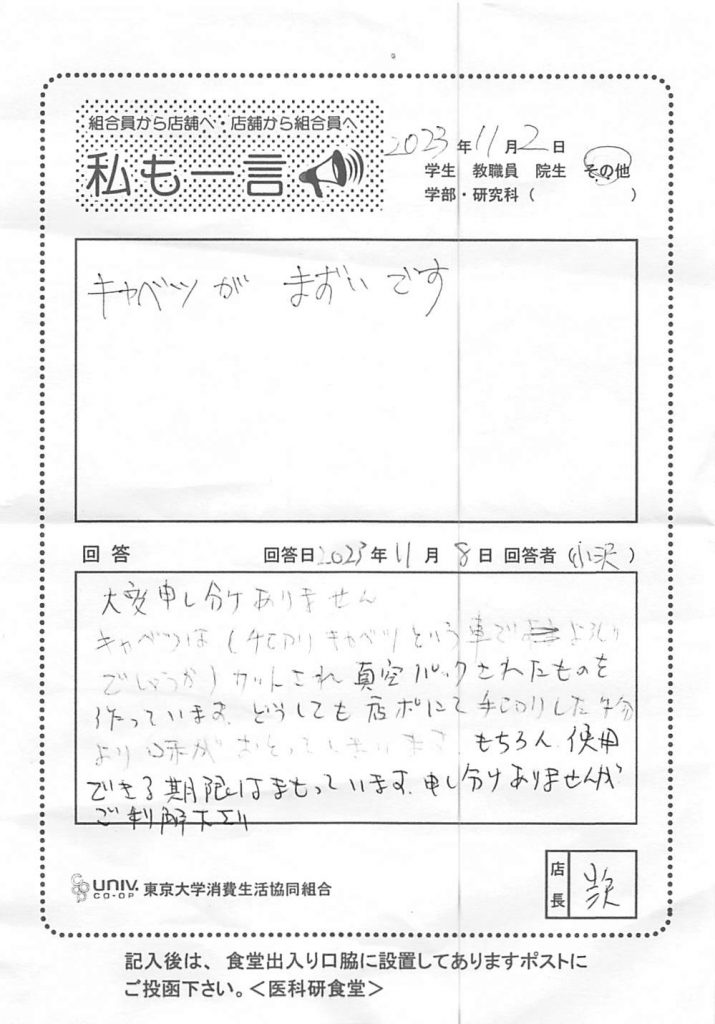 組合員から店舗へ・店舗から組合員へ
私も一言
2023年11月2日
学生 教職員 院生 その他
学部・研究科( )
キャベツが まずいです
回答 回答日2023年11月8日 回答者(小沢)
大変申し分けありません
キャベツは(千切りキャベツという事で よろしい
でしょうか)カットされ真空パックされたものを
使っています。どうしても店ポにて千切りした
より味がおとってしまいます。もちろん、使用
できる期限はまもっています。申し分けありませんが
ご利解下さい
UNIV. CO-OP 東京大学消費生活協同組合
店長
記入後は、食堂出入り口脇に設置してありますポストに
ご投函下さい。<医科研食堂>